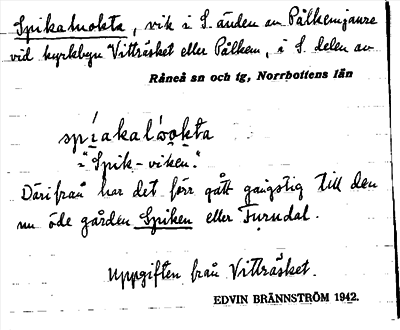 Spikaluokta, vik i S. änden av Pålkemjaure
vid kyrkbyn Vitträsket eller Pålkem, i S. delen av
Råneå sn och tg, Norrbottens län
spiakalu̯okta
"Spik-viken."
Därifrån har det förr gått gångstig till den
nu öde gården Spiken eller Furudal.
Uppgiften från Vitträsket.
EDVIN BRÄNNSTRÖM 1942.